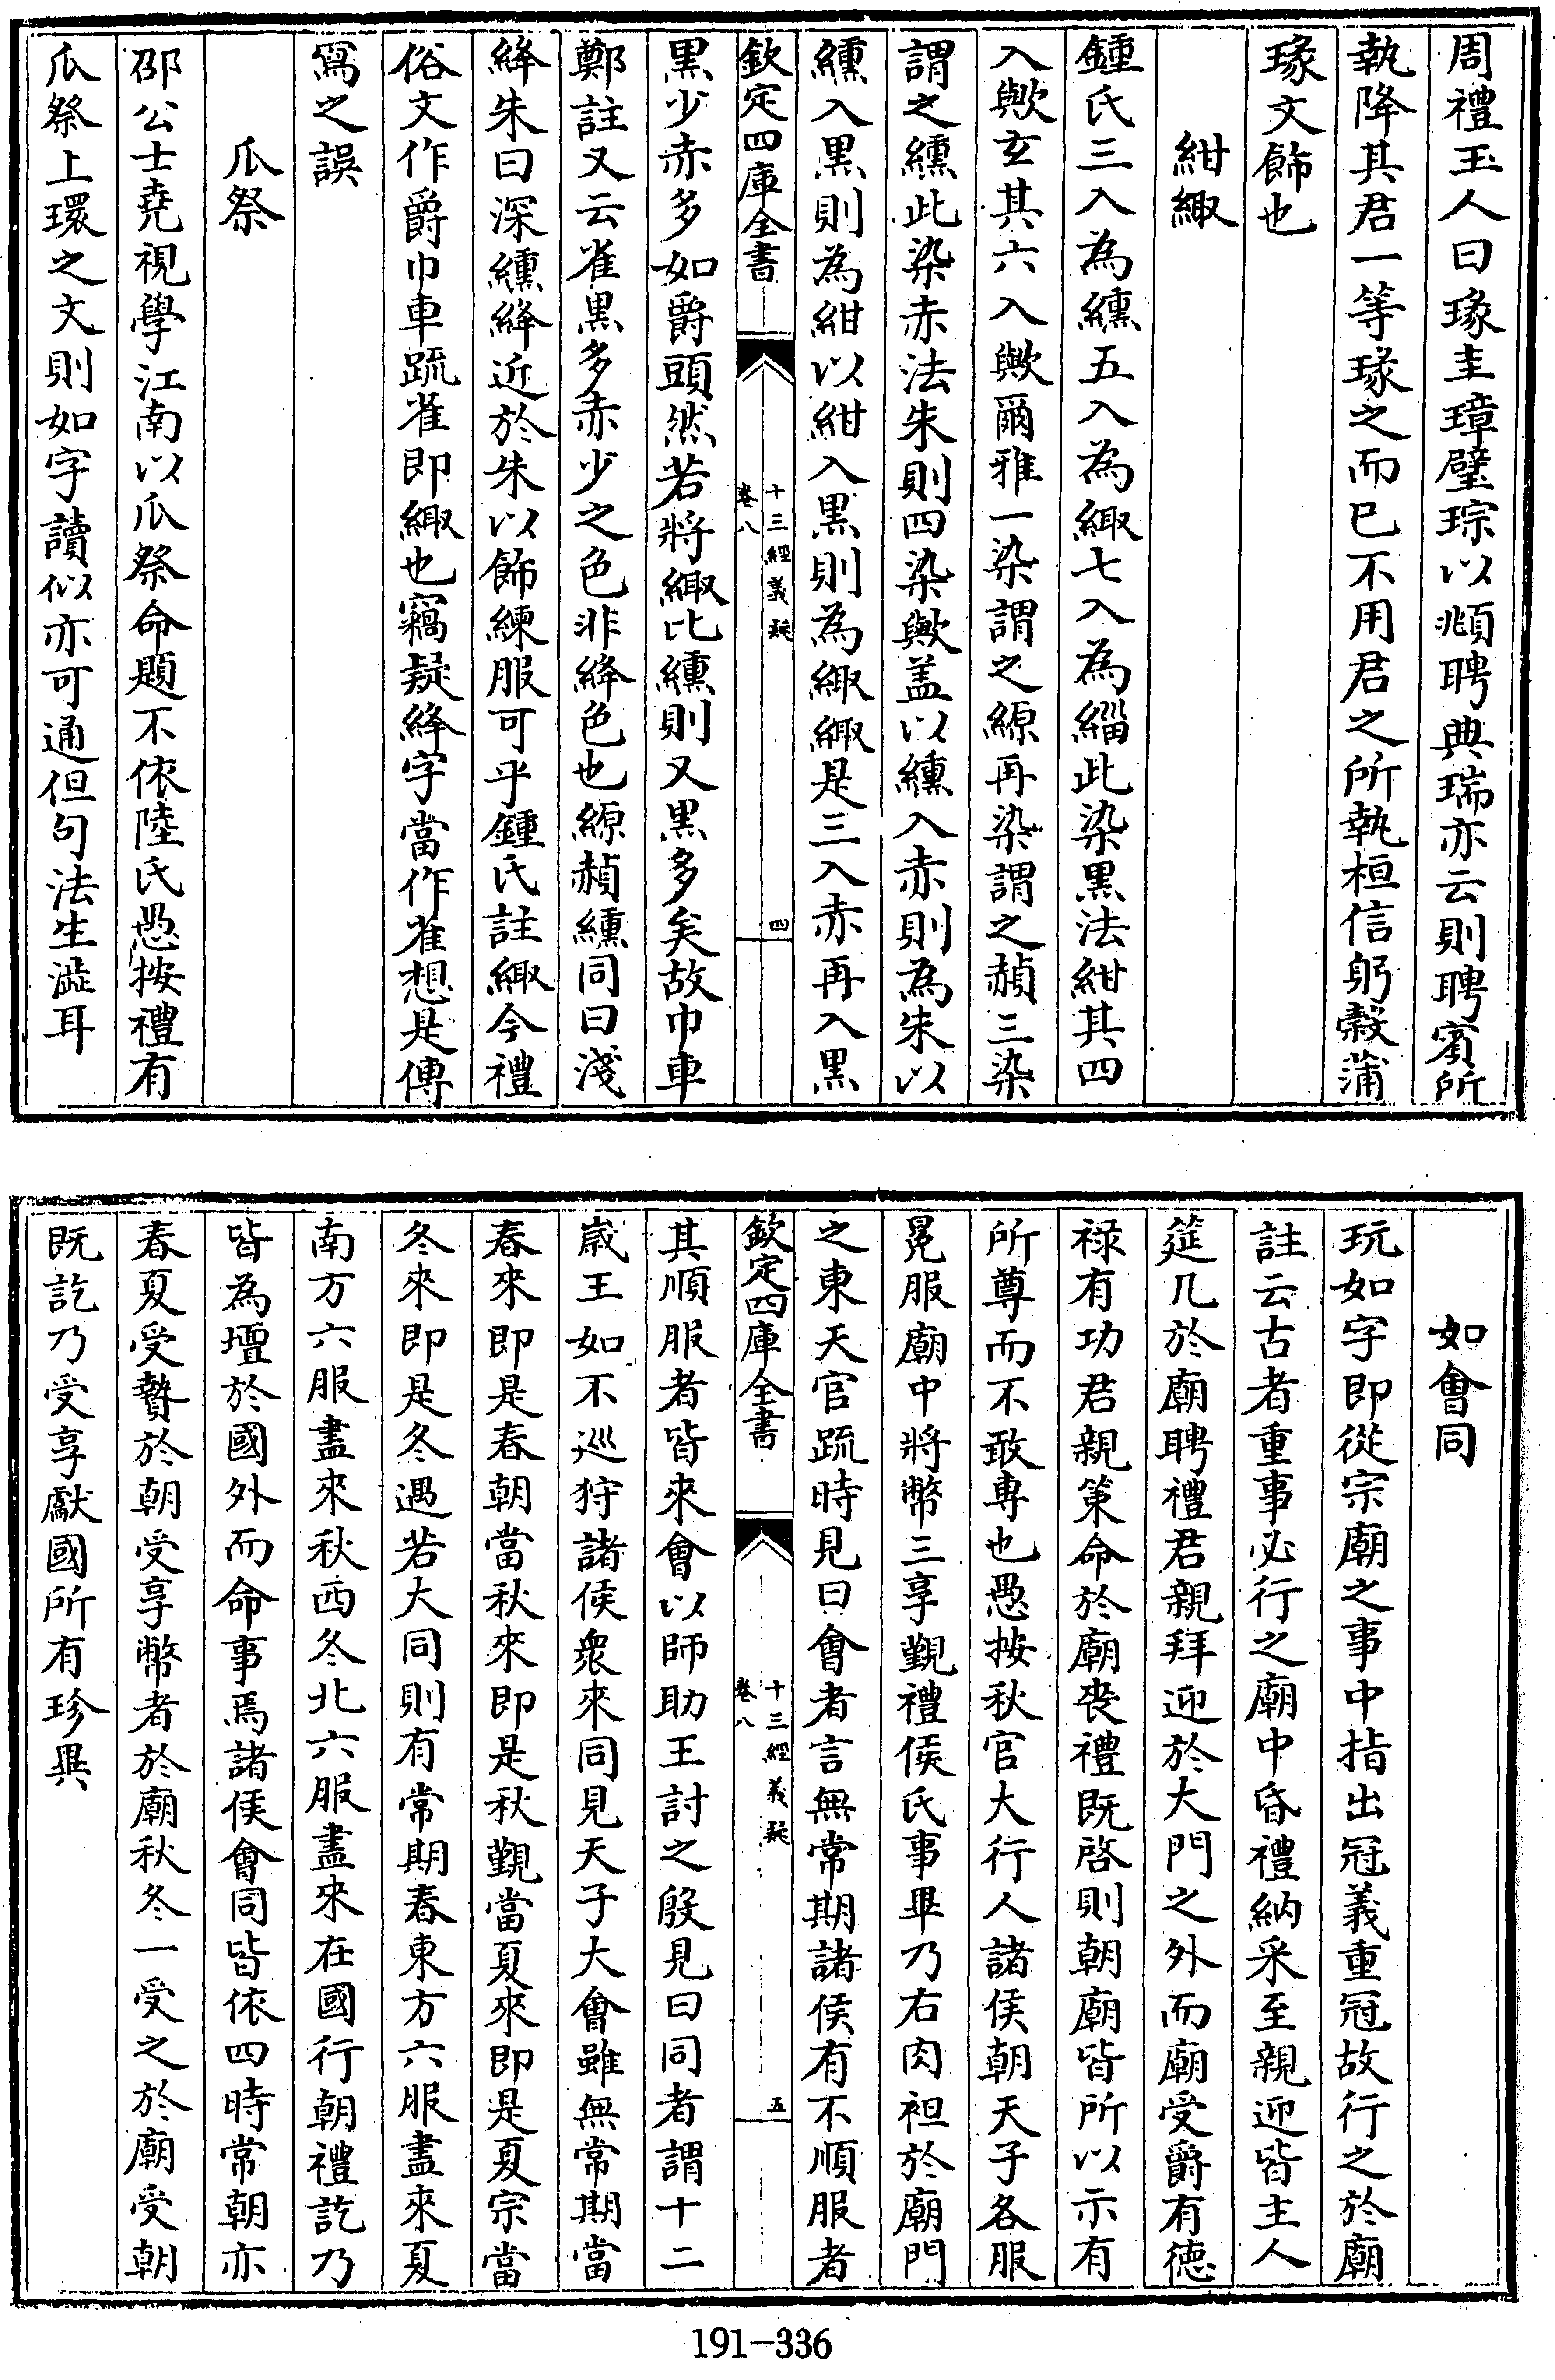 周禮玉人曰瑑圭璋璧琮以頫聘典瑞亦云則聘賓所
執降其君一等瑑之而已不用君之所執桓信躬穀蒲
瑑文飾也
紺緅
鍾氏三入為纁五入為緅七入為緇此染黑法紺其四
入歟玄其六入歟爾雅一染謂之縓再染謂之赬三染
謂之纁此染赤法朱則四染歟盖以纁入赤則為朱以
纁入黑則為紺以紺入黑則為緅緅是三入赤再入黑
欽定四庫全書
十三經義疑
卷八
四
黑少赤多如爵頭然若將緅比纁則又黑多矣故巾車
鄭註又云雀黑多赤少之色非絳色也縓赬纁同曰淺
絳朱曰深纁絳近於朱以飾練服可乎鍾氏註緅今禮
俗文作爵巾車疏雀即緅也竊疑絳字當作雀想是傳
寫之誤
瓜祭
邵公士堯視學江南以瓜祭命題不依陸氏愚按禮有
瓜祭上環之文則如字讀似亦可通但句法生澁耳
如會同
玩如字即從宗廟之事中指出冠義重冠故行之於廟
註云古者重事必行之廟中昏禮納采至親迎皆主人
筵几於廟聘禮君親拜迎於大門之外而廟受爵有德
禄有功君親策命於廟喪禮既啓則朝廟皆所以示有
所尊而不敢専也愚按秋官大行人諸侯朝天子各服
冕服廟中將幣三享覲禮侯氏事畢乃右肉袒於廟門
之東天官疏時見曰會者言無常期諸侯有不順服者
欽定四庫全書
十三經義疑
卷八
五
其順服者皆來會以師助王討之殷見曰同者謂十二
歲王如不巡狩諸侯衆來同見天子大會雖無常期當
春來即是春朝當秋來即是秋覲當夏來即是夏宗當
冬來即是冬遇若大同則有常期春東方六服盡來夏
南方六服盡來秋西冬北六服盡來在國行朝禮訖乃
皆為壇於國外而命事焉諸侯會同皆依四時常朝亦
春夏受贄於朝受享幣者於廟秋冬一受之於廟受朝
既訖乃受享獻國所有珍異
191-336